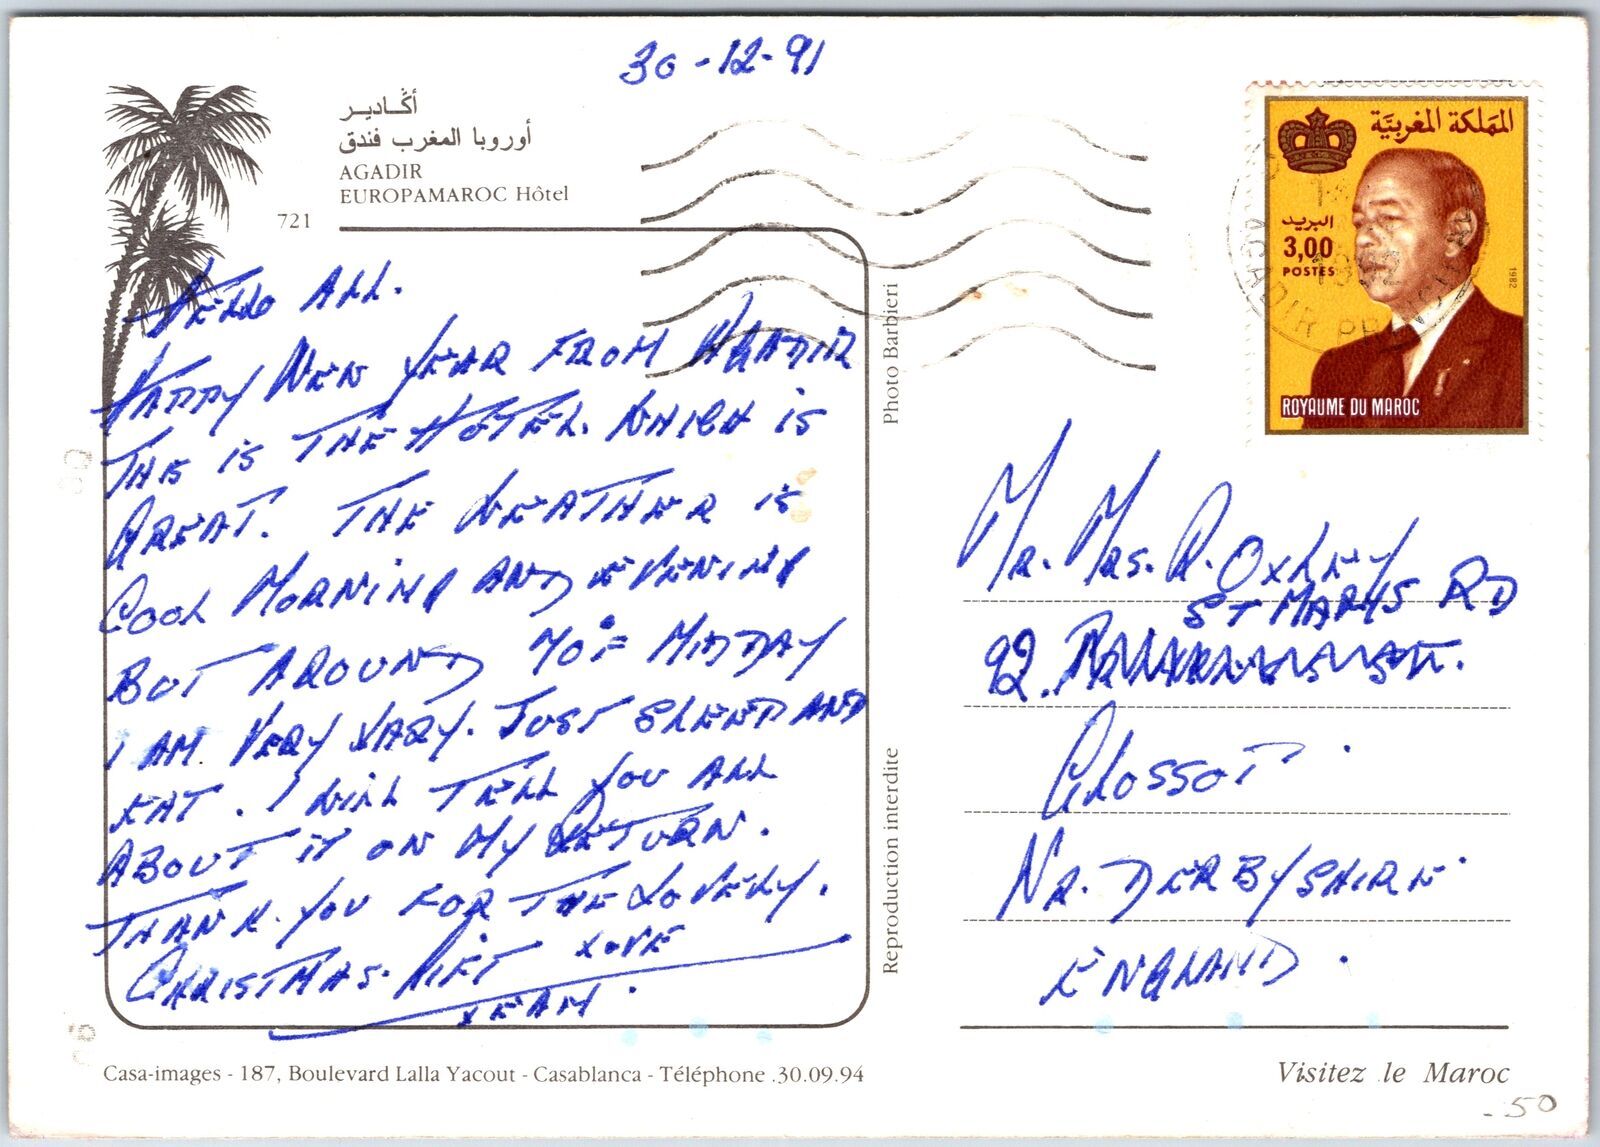 30-12-91
أݣادير
أوروبا المغرب فندق
AGADIR
EUROPAMAROC Hôtel
721
HELLO ALL.
HAPPY NEW YEAR FROM AGADIR
THIS IS THE HOTEL. WHICH IS
GREAT. THE WEATHER IS
COOL MORNING AND EVENING
BUT AROUND 70°F MIDDAY
I AM VERY LAZY. JUST SLEEP AND
EAT. I WILL TELL YOU ALL
ABOUT IT ON MY RETURN.
THANK. YOU FOR THE LOVELY.
CHRISTMAS. GIFT LOVE
Photo Barbieri
Reproduction interdite
المملكة المغربية
البريد
3,00
POSTES
1982
ROYAUME DU MAROC
1992
AGADIR PRINCIPAL
MR. MRS. R. OXLEY
ST MARYS RD
92.
GLOSSOT.
NR. DERBYSHIRE.
ENGLAND.
Casa-images - 187, Boulevard Lalla Yacout - Casablanca - Téléphone .30.09.94
Visitez le Maroc
.50